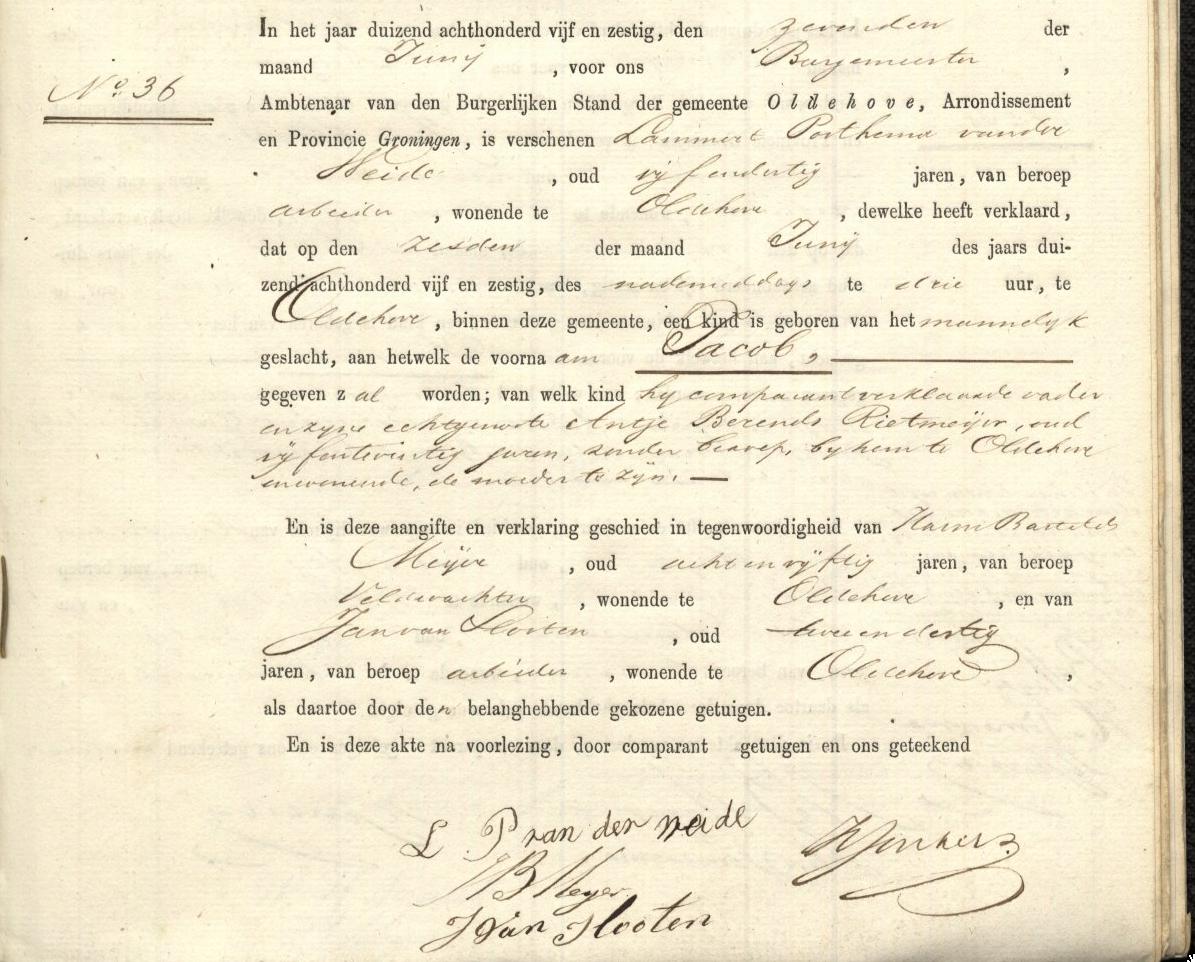 In het jaar duizend achthonderd vijf en zestig, den zevenden der
maand Junij , voor ons Burgemeester ,
No 36
Ambtenaar van den Burgerlijken Stand der gemeente Oldehove, Arrondissement
en Provincie Groningen, is verschenen Lammert Posthema van der
Weide , oud vijf en dertig jaren, van beroep
arbeider , wonende te Oldehove , dewelke heeft verklaard,
dat op den zesden der maand Junij des jaars dui-
zend achthonderd vijf en zestig, des nademiddags te drie uur, te
Oldehove , binnen deze gemeente, een kind is geboren van het mannelijk
geslacht, aan hetwelk de voorna am Jacob,
gegeven z al worden; van welk kind hij comparant verklaarde vader
en zijne echtgenoote Antje Berends Rietmeijer, oud
vijf en twintig jaren, zonder beroep, bij hem te Oldehove
inwonende, de moeder te zijn. —
En is deze aangifte en verklaring geschied in tegenwoordigheid van Harm Bartelds
Meijer , oud acht en vijftig jaren, van beroep
Veldwachter , wonende te Oldehove , en van
Jan van Slooten , oud twee en dertig
jaren, van beroep arbeider , wonende te Oldehove ,
als daartoe door den belanghebbende gekozene getuigen.
En is deze akte na voorlezing, door comparant getuigen en ons geteekend
L P van der weide
HB Meyer
J van Slooten